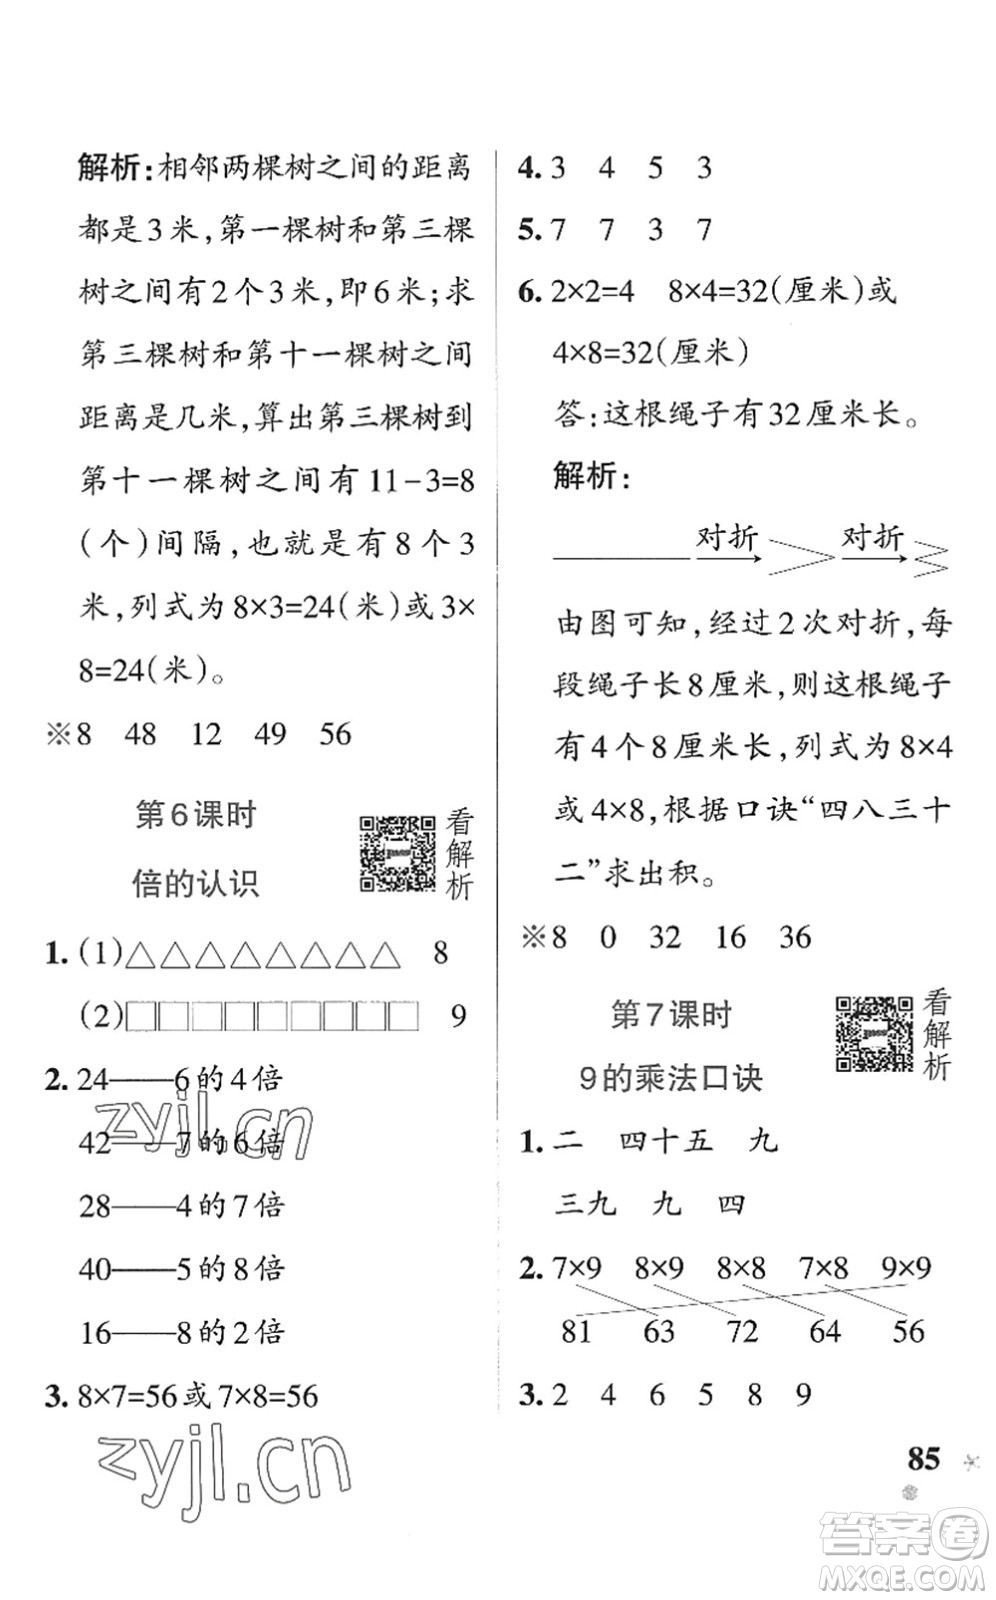 解析:相邻两棵树之间的距离
都是3米,第一棵树和第三棵
树之间有2个3米,即6米;求
第三棵树和第十一棵树之间
距离是几米,算出第三棵树到
第十一棵树之间有11-3=8
(个)间隔,也就是有8个3
米,列式为8×3=24(米)或3×
8=24(米)。
※8 48 12 49 56
第6课时
倍的认识
看解析
1.(1)△△△△△△△△ 8
(2)□□□□□□□□□ 9
2.24——6的4倍
42——7的6倍
28——4的7倍
40——5的8倍
16——8的2倍
3.8×7=56或7×8=56
4.3 4 5 3
5.7 7 3 7
6.2×2=4 8×4=32(厘米)或
4×8=32(厘米)
答:这根绳子有32厘米长。
解析:
对折 对折
由图可知,经过2次对折,每
段绳子长8厘米,则这根绳子
有4个8厘米长,列式为8×4
或4×8,根据口诀“四八三十
二”求出积。
※8 0 32 16 36
第7课时
9的乘法口诀
看解析
1.二 四十五 九
三九 九 四
2.7×9 8×9 8×8 7×8 9×9
81 63 72 64 56
3.2 4 6 5 8 9
85
zyjl.cn
zyjl.cn
答案卷
MXQE.COM